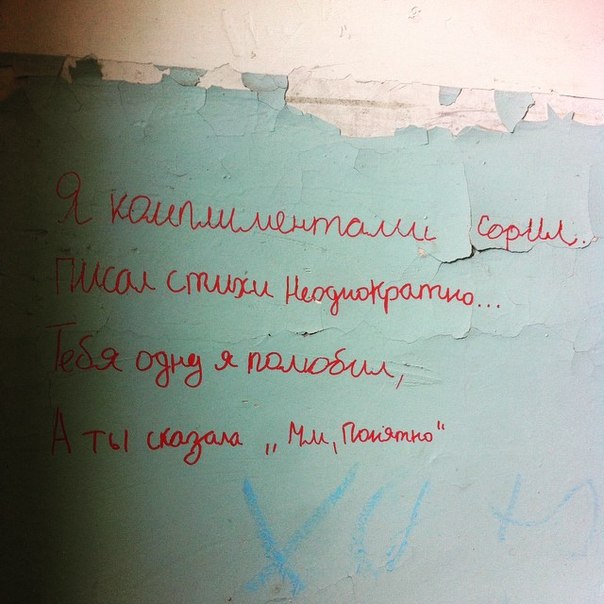 Я комплиментами сорил..
Писал стихи неоднократно...
Тебя одну я полюбил,
А ты сказала „Мм, Понятно"